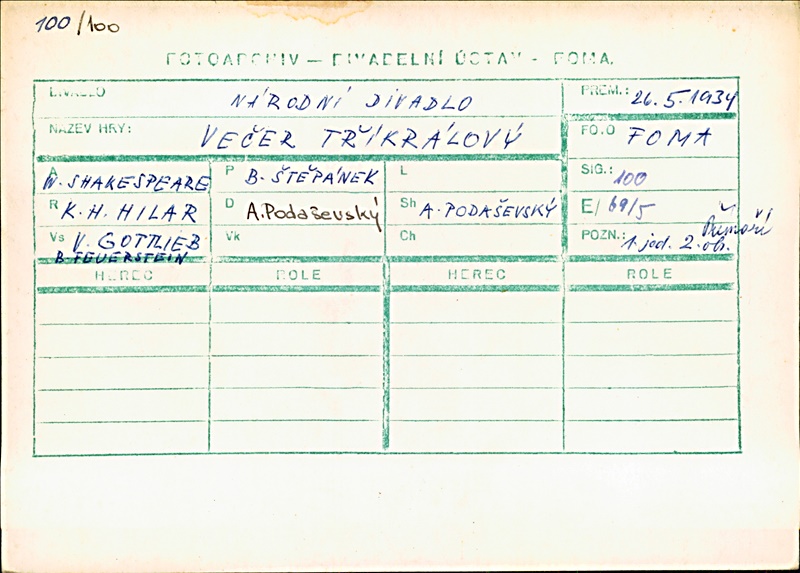 100/100
FOTOARCHIV — DIVADELNÍ ÚSTAV - FOMA.
DIVADLO NÁRODNÍ DIVADLO PREM.: 26.5.1934
NÁZEV HRY: VEČER TŘÍKRÁLOVÝ FOTO FOMA
A W. SHAKESPEARE P B. ŠTĚPÁNEK L SIG.: 100
R K. H. HILAR D A. Podaševský Sh A. PODAŠEVSKÝ E/ 69/5
Vs V. GOTTLIEB Vk Ch POZN.: 1. jed. 2. ob. Přímoří
B. FEUERSTEIN
HEREC ROLE HEREC ROLE